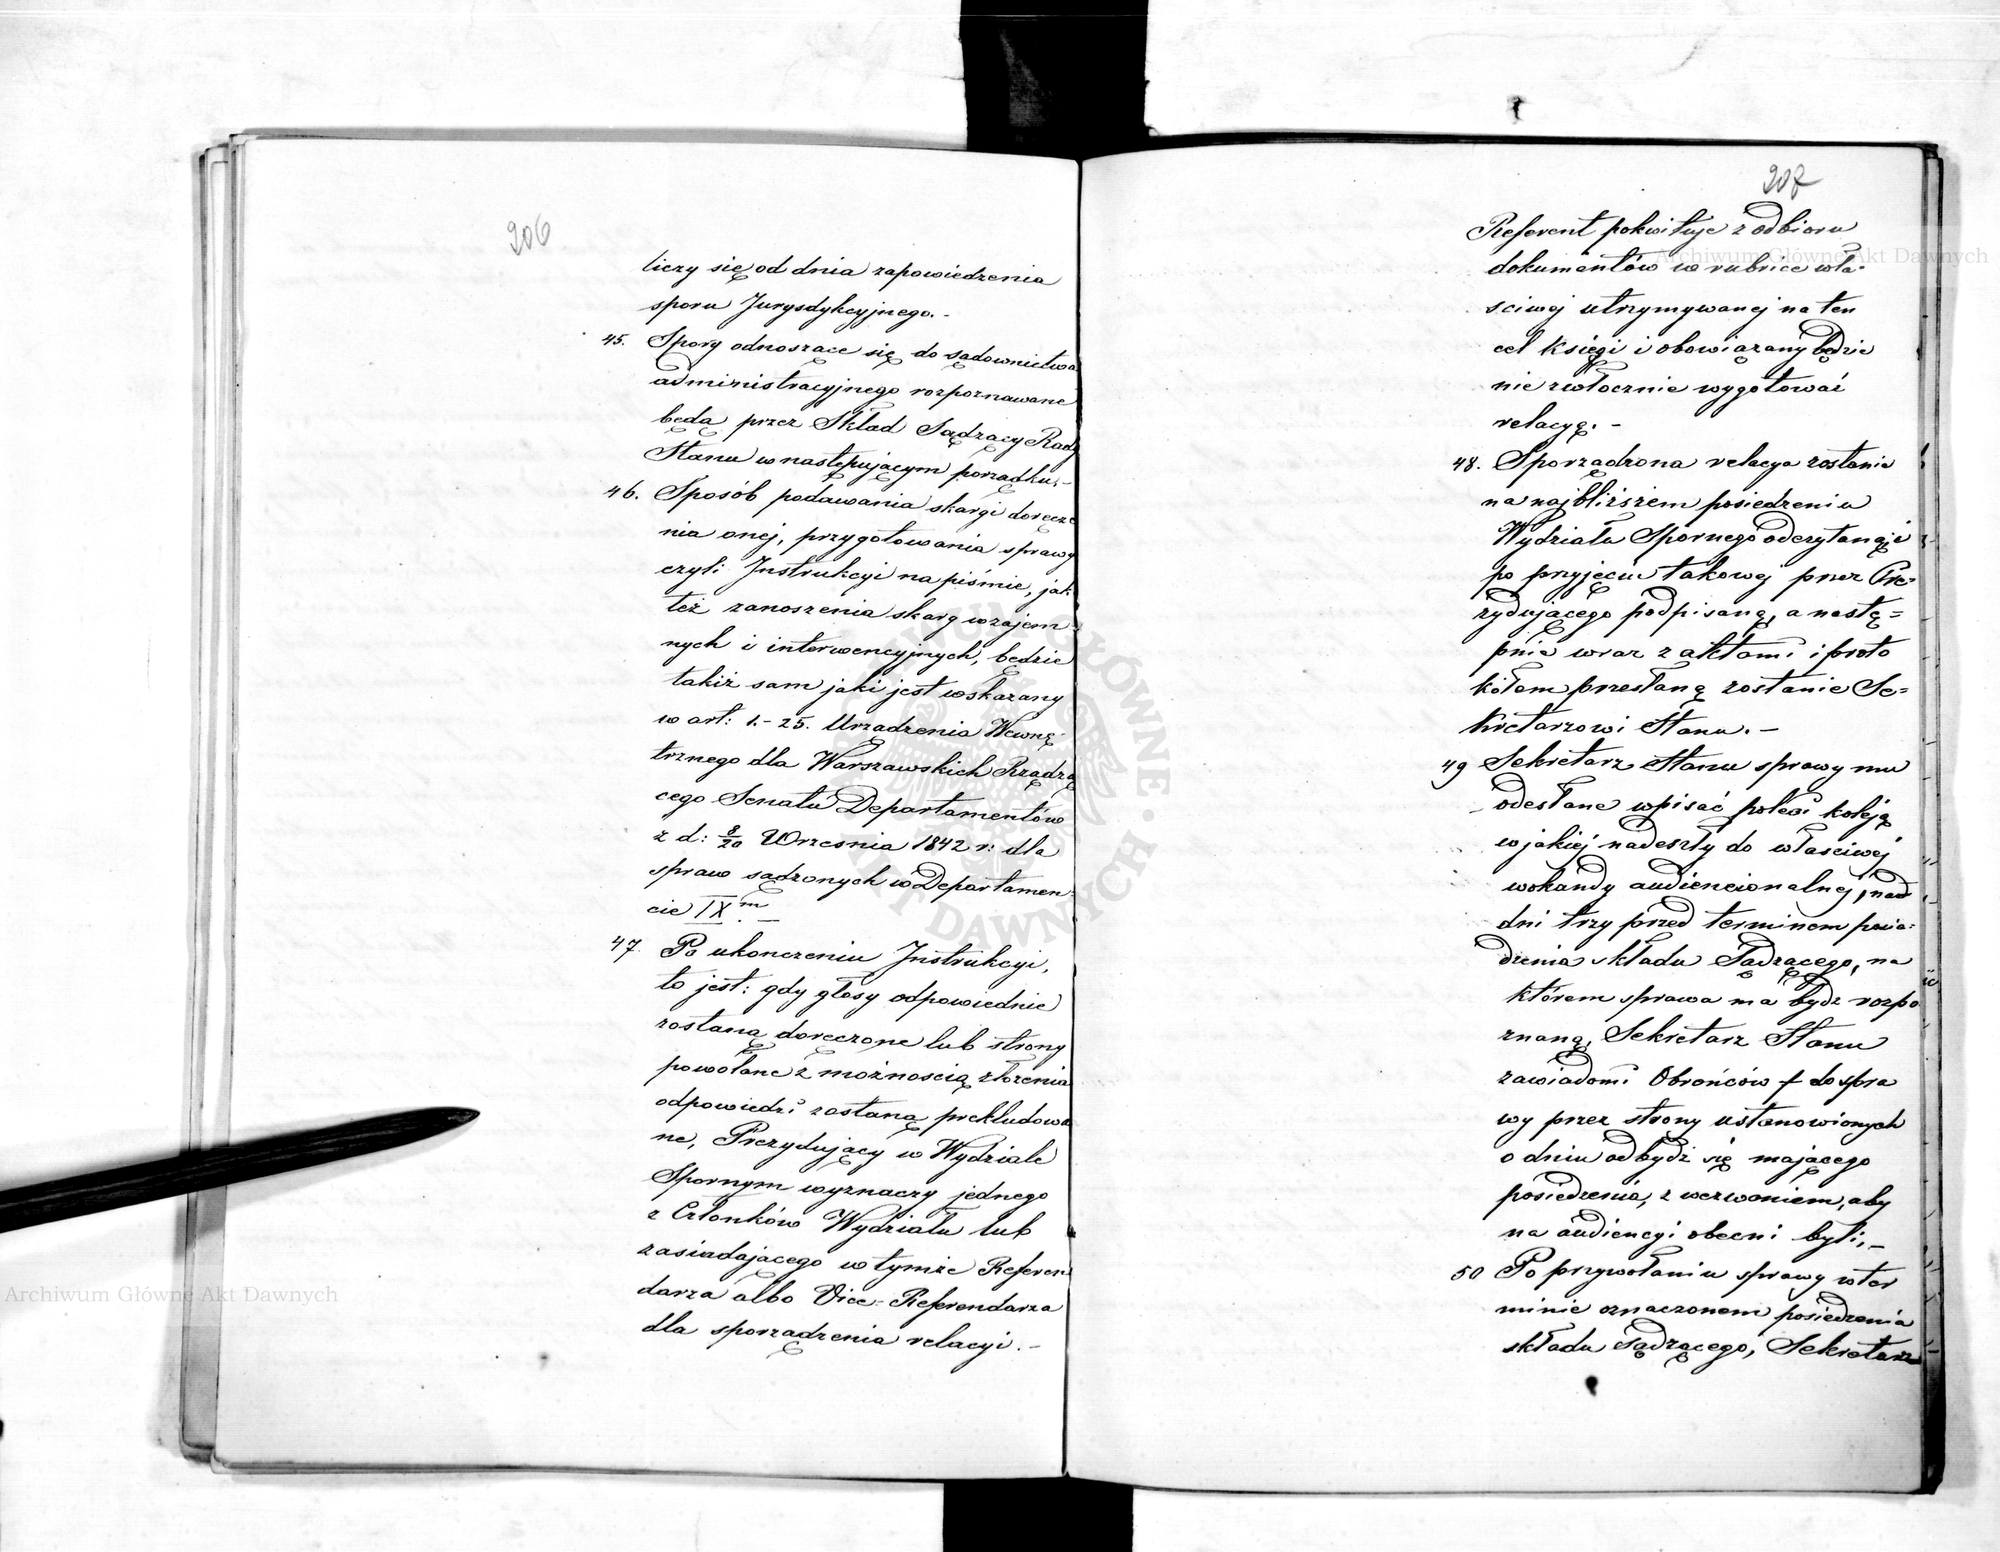 206
liczy się od dnia zapowiedzenia
sporu Jurysdykcyjnego. -
45. Spory odnoszące się do sądownictwa
administracyjnego rozpoznawane
będą przez Skład Sądzący Rady
Stanu w następującym porządku. -
46. Sposób podawania skargi doręcze
nia onej, przygotowania sprawy
czyli Instrukcyi na piśmie, jak
też zanoszenia skarg wzajem-
nych i interwencyjnych, będzie
takiż sam jaki jest wskazany
w art: 1. - 25. Urządzenia Wewnę-
trznego dla Warszawskich Rządzą
cego Senatu Departamentów
z d: 8/20 Września 1842 r: dla
spraw sądzonych w Departamen-
cie IXm
47. Po ukończeniu Instrukcyi,
to jest: gdy głosy odpowiednie
zostaną doręczone lub strony
powołane z możnością złożenia
odpowiedzi zostaną prekludowa
ne, Prezydujący w Wydziale
Spornym wyznaczy jednego
z Członków Wydziału lub
zasiadającego w tymże Referen
darza albo Vice-Referendarza
dla sporządzenia relacyi. -
207
Referent pokwituje z odbioru
dokumentów w rubrice wła-
sciwej utrzymywanej na ten
cel księgi i obowiązany będzie
nie zwłocznie wygotować
relacyę. -
48. Sporządzona relacya zostanie
na najbliższem posiedzeniu
Wydziału Spornego odczytaną i
po przyjęciu takowej przez Pre=
zydującego podpisaną, a nastę=
pnie wraz z aktami i proto
kółem przesłaną zostanie Se=
kretarzowi Stanu. -
49 Sekretarz Stanu sprawy mu
odesłane wpisać poleci koleją
w jakiej nadeszły do właściwej
wokandy audiencionalnej, na
dni trzy przed terminem posie-
dzenia składu Sądzącego, na
którem sprawa ma bydź rozpo
znaną, Sekretarz Stanu
zawiadomi Obrońców do spra
wy przez strony ustanowionych
o dniu odbydź się mającego
posiedzenia, z wezwaniem, aby
na audiencyi obecni byli, -
50 Po przywołaniu sprawy w ter
minie oznaczonem posiedzenia
składu sądzącego, Sekretarz
Archiwum Główne Akt Dawnych
Archiwum Główne Akt Dawnych
ARCHIWUM GŁÓWNE AKT DAWNYCH